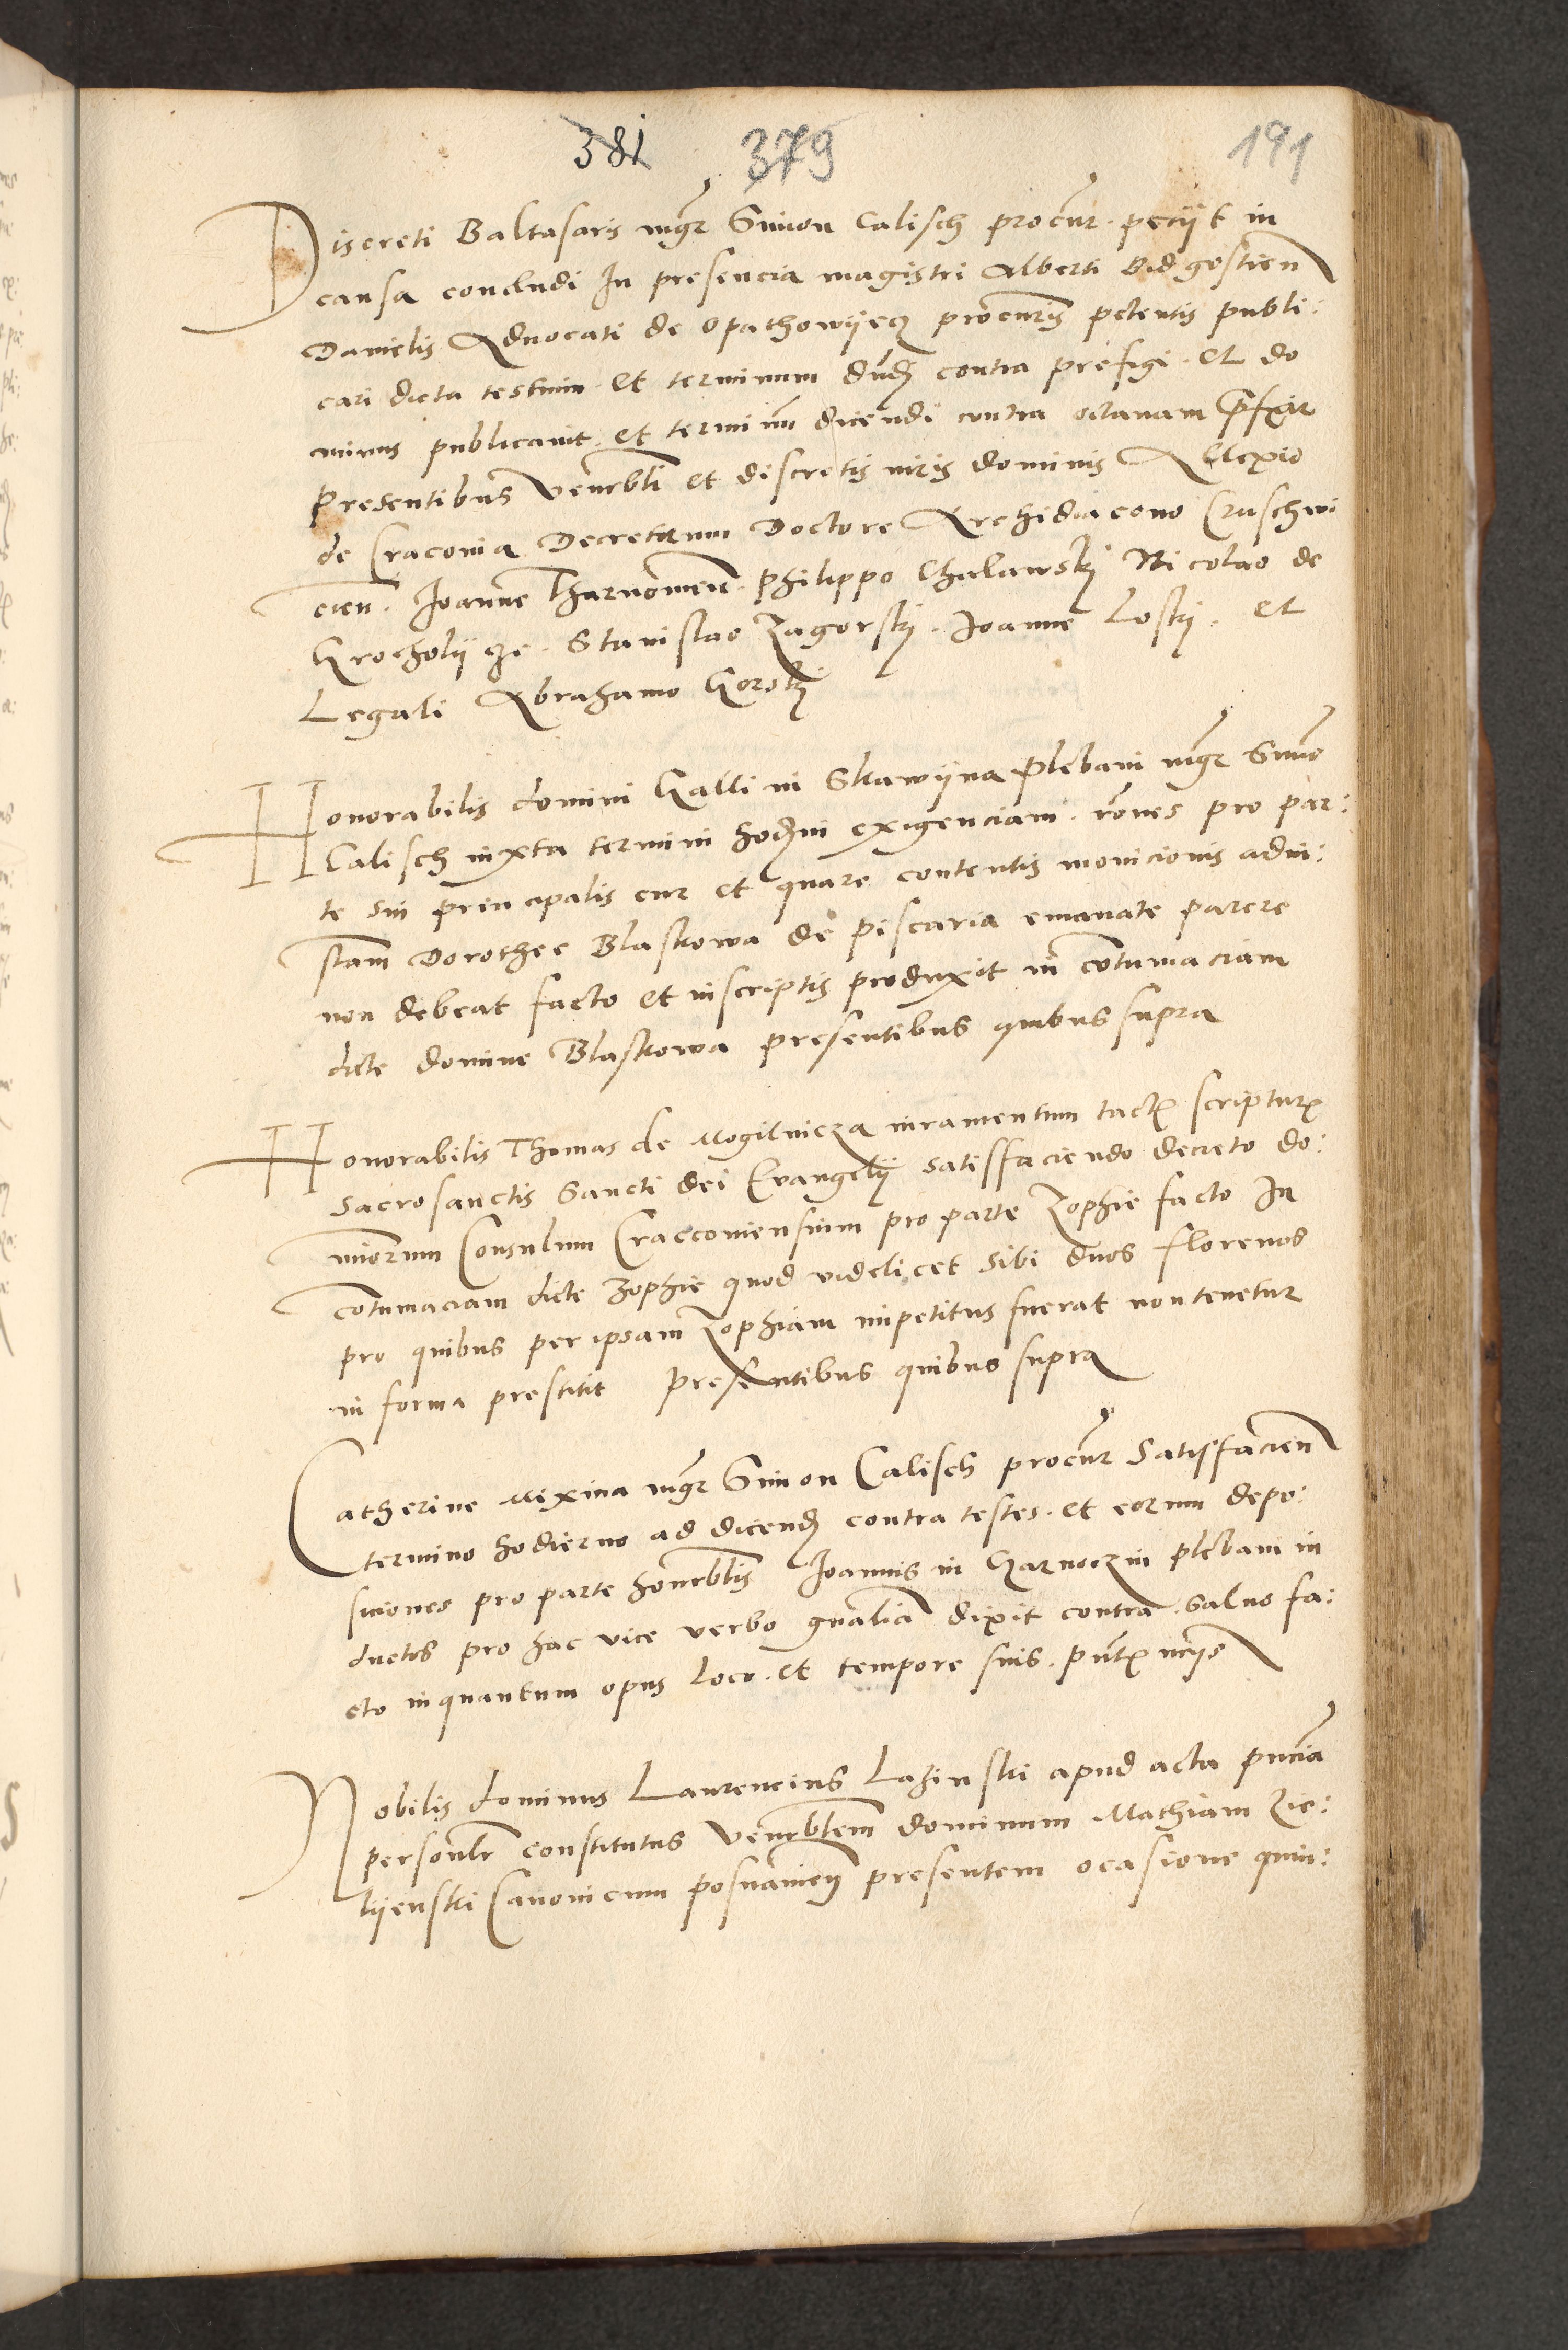 381 379 191
Discreti Baltasaris mgr Simon Calisch procur. peciit in
causa concludi In presencia magistri Alberti Bidgostien
Danielis Advocati de Opathowyecz procuris petentis publi:
cari dicta testium. Et terminum ducendi contra prefigi. Et do
minus publicavit. et terminum dicendi contra octavam prefixit
Presentibus Venerbli et discretis viris dominis Allexio
de Cracovia Decretorum Doctore Archidiacono Cruschwi
cien. Joanne Tharnowien. Philippo Chalawsky Nicolao de
Krocholycze. Stanislao Zagorsky. Joanne Losky. Et
Legali Abrahamo Gorsky
Honorabilis domini Galli in Skawyna plebani mgr Simo
Calisch iuxta termini hodierni exigenciam. rones pro par:
te sui principalis cur et quare contentis monicionis ad in:
stam Dorothee Blaskowa de piscaria emanate parere
non debeat facto et in scriptis produxit in contumaciam
dicte domine Blaskowa presentibus quibus supra
Honorabilis Thomas de Mogilnicza iuramentum tactis scripturis
sacrosanctis Sancti dei Evangelii satisffaciendo decreto do:
minorum Consulum Craccoviensium pro parte Zophie facto In
contumaciam dicte Zophie quod videlicet sibi duos florenos
pro quibus per ipsam Zophiam impetitus fuerat non tenetur
in forma prestitit presentibus quibus supra
Catherine Mixina mgr Simon Calisch procur Satisfacien
termino hodierno ad dicend contra testes. et eorum depo:
siciones pro parte honorblis Joannis in Czarnoczin plebani in
ductos pro hac vice verbo gnalia dixit contra. Salvo fa:
cto inquantum opus loco. et tempore suis. pntx uciis
Nobilis dominus Laurencius Lazinski apud acta pncia
personlr constitutus Venerblem dominum Mathiam Zie:
lyenski Canonicum posnanien presentem ocasione quin: